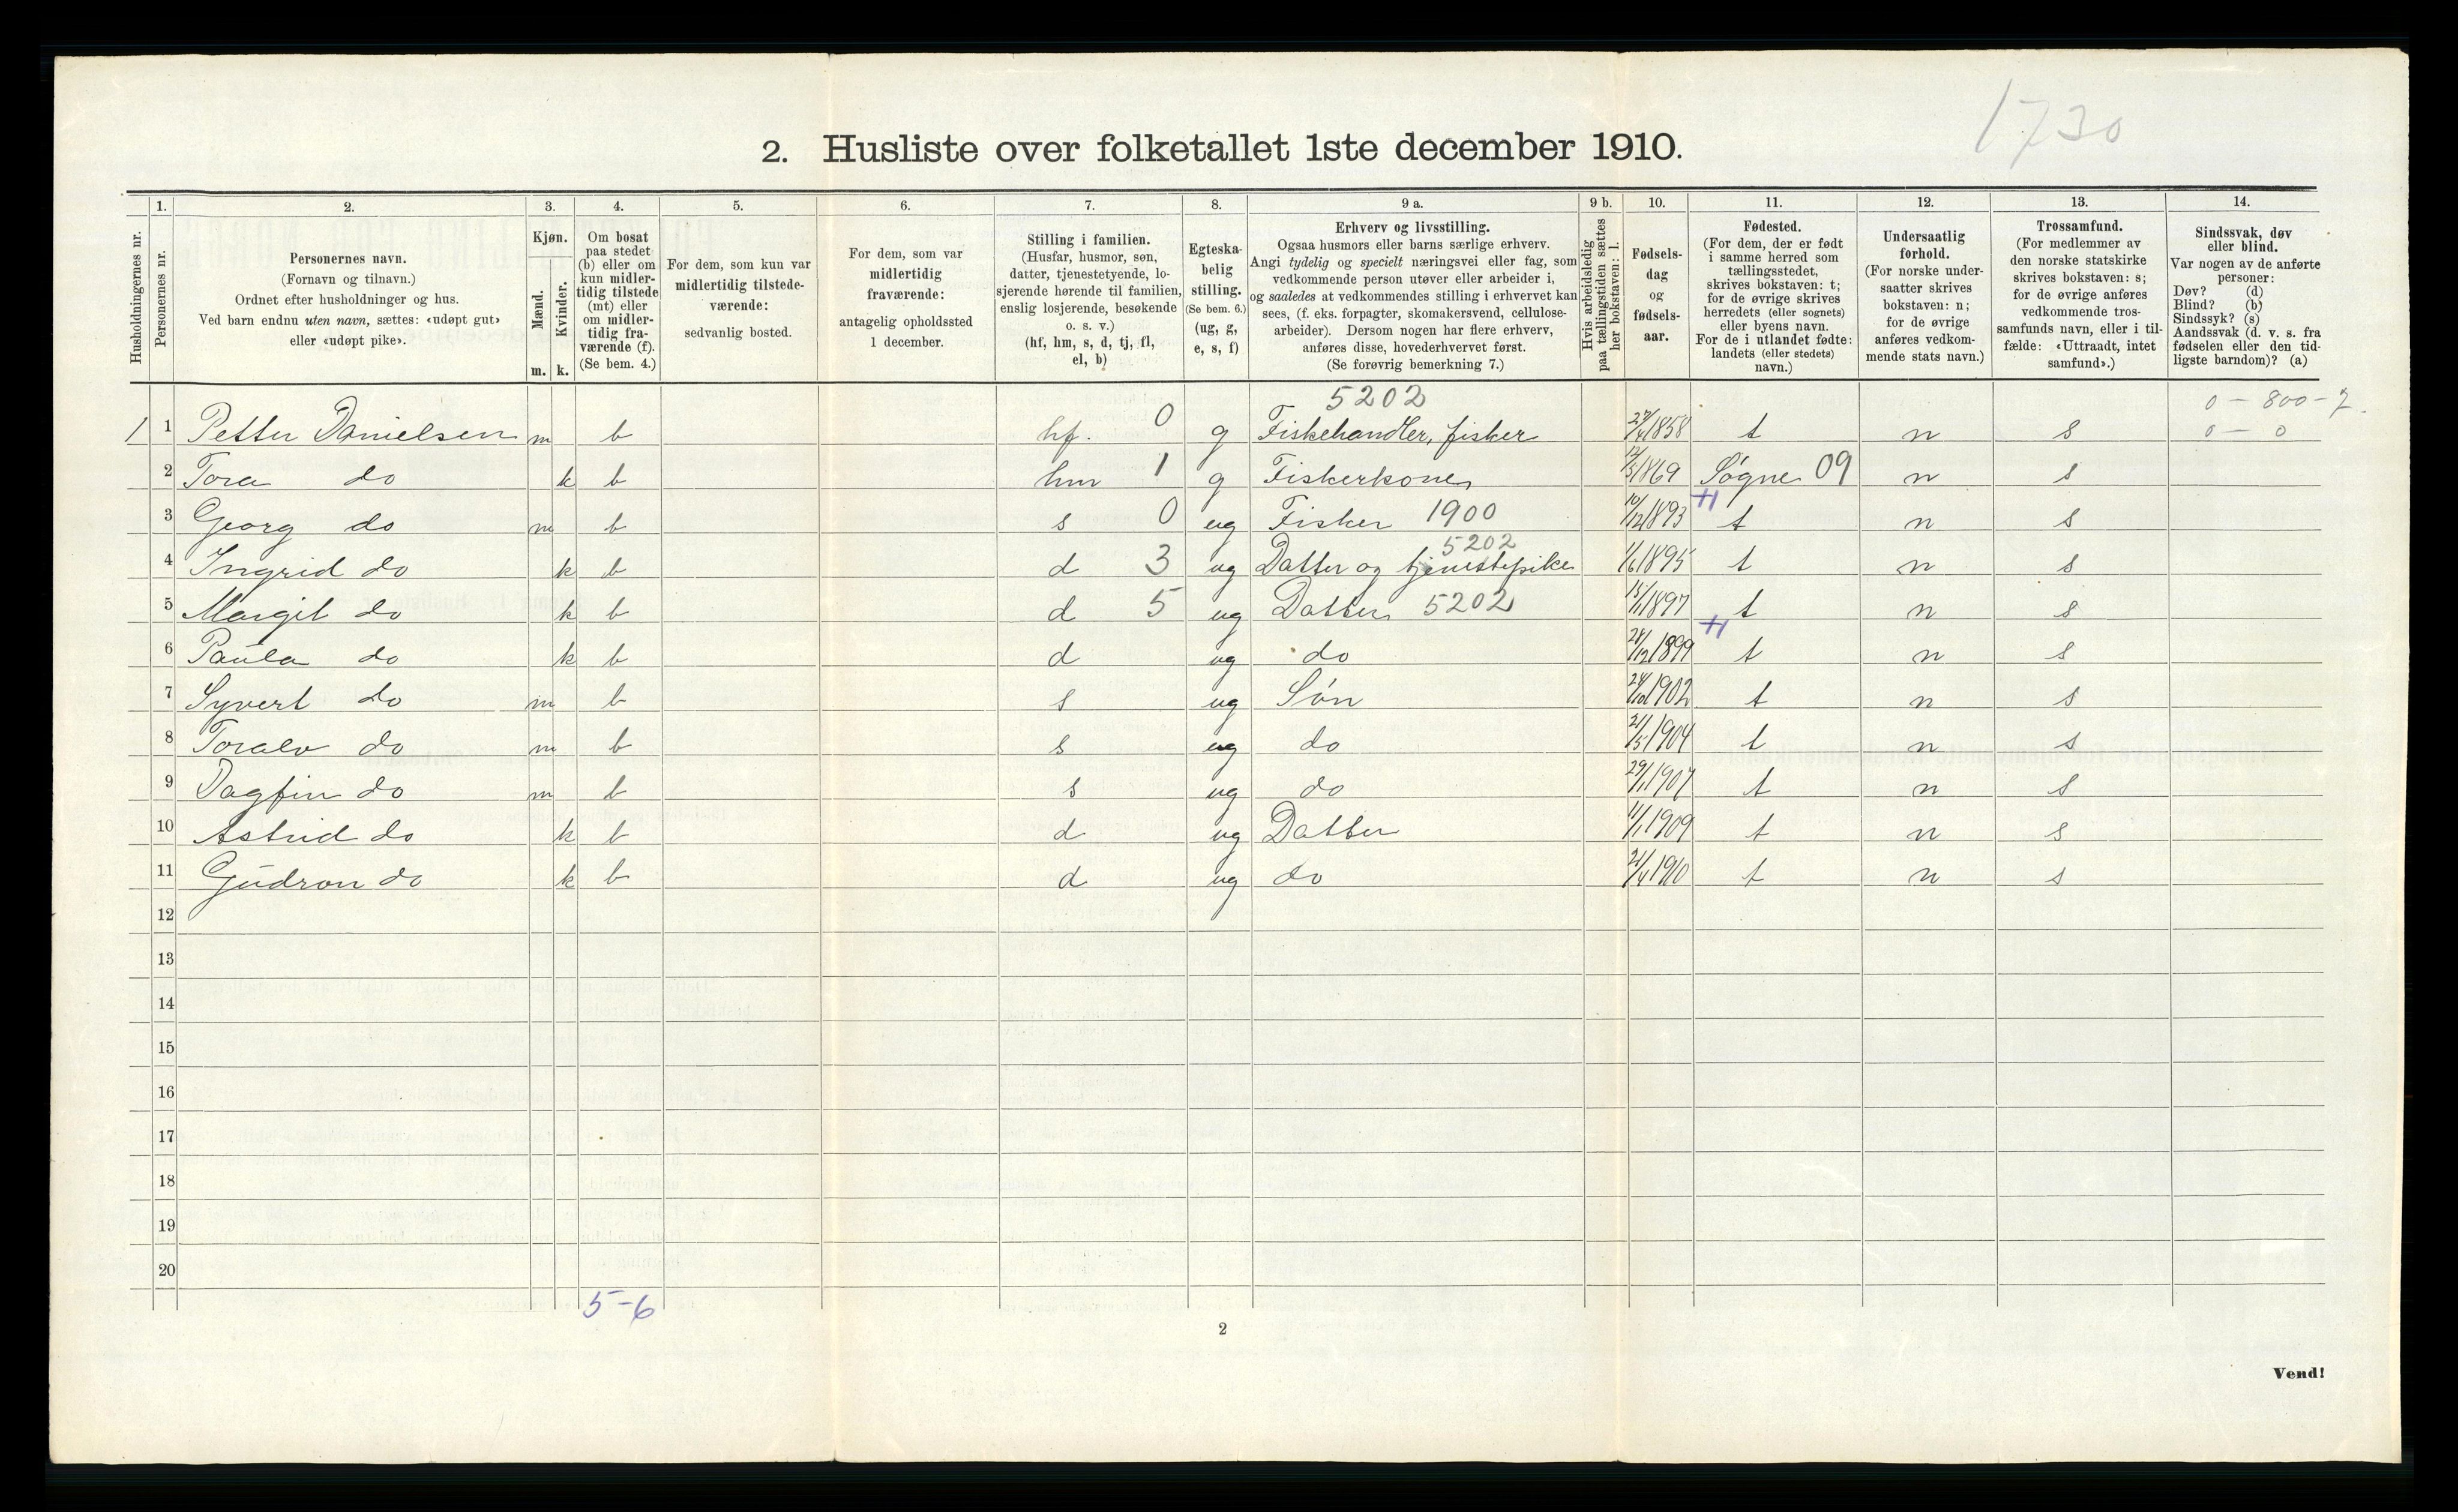 1730
2. Husliste over folketallet 1ste december 1910.
1. 2. 3. 4. 5. 6. 7. 8. 9 a. 9 b. 10. 11. 12. 13. 14.
Husholdningernes nr.
Personernes nr.
Personernes navn.
(Fornavn og tilnavn.)
Ordnet efter husholdninger og hus.
Ved barn endnu uten navn, sættes: «udøpt gut»
eller «udøpt pike».
Kjøn.
Mænd.
Kvinder.
m. k.
Om bosat
paa stedet
(b) eller om
kun midler-
tidig tilstede
(mt) eller
om midler-
tidig fra-
værende (f).
(Se bem. 4.)
For dem, som kun var
midlertidig tilstede-
værende:
sedvanlig bosted.
For dem, som var
midlertidig
fraværende:
antagelig opholdssted
1 december.
Stilling i familien.
(Husfar, husmor, søn,
datter, tjenestetyende, lo-
sjerende hørende til familien,
enslig losjerende, besøkende
o. s. v.)
(hf, hm, s, d, tj, fl,
el, b)
Egteska-
belig
stilling.
(Se bem. 6.)
(ug, g,
e, s, f)
Erhverv og livsstilling.
Ogsaa husmors eller barns særlige erhverv.
Angi tydelig og specielt næringsvei eller fag, som
vedkommende person utøver eller arbeider i,
og saaledes at vedkommendes stilling i erhvervet kan
sees, (f. eks. forpagter, skomakersvend, cellulose-
arbeider). Dersom nogen har flere erhverv,
anføres disse, hovederhvervet først.
(Se forøvrig bemerkning 7.)
Hvis arbeidsledig
paa tællingstiden sættes
her bokstaven: l.
Fødsels-
dag
og
fødsels-
aar.
Fødested.
(For dem, der er født
i samme herred som
tællingsstedet,
skrives bokstaven: t;
for de øvrige skrives
herredets (eller sognets)
eller byens navn.
For de i utlandet fødte:
landets (eller stedets)
navn.)
Undersaatlig
forhold.
(For norske under-
saatter skrives
bokstaven: n;
for de øvrige
anføres vedkom-
mende stats navn.)
Trossamfund.
(For medlemmer av
den norske statskirke
skrives bokstaven: s;
for de øvrige anføres
vedkommende tros-
samfunds navn, eller i til-
fælde: «Uttraadt, intet
samfund».)
Sindssvak, døv
eller blind.
Var nogen av de anførte
personer:
Døv? (d)
Blind? (b)
Sindssyk? (s)
Aandssvak (d. v. s. fra
fødselen eller den tid-
ligste barndom)? (a)
5202 0 - 800 - 2
1 1 Petter Danielsen m b hf. 0 g Fiskehandler, fisker 27/4 1858 t n s 0 - 0
2 Tora do k b hm 1 g Fiskerkone 12/5 1869 Søgne 09 n s
3 Georg do m b s 0 ug Fisker 1900 10/12 1893 t n s
5202
4 Ingrid do k b d 3 ug Datter og tjenestepike 1/6 1895 t n s
5 Margit do k b d 5 ug Datter 5202 15/1 1897 t n s
6 Paula do k b d ug do 28/12 1899 t n s
7 Syvert do m b s ug Søn 24/10 1902 t n s
8 Toralv do m b s ug do 21/5 1904 t n s
9 Dagfin do m b s ug do 29/1 1907 t n s
10 Astrid do k b d ug Datter 11/1 1909 t n s
11 Gudron do k b d ug do 21/4 1910 t n s
12
13
14
15
16
17
18
19
20
5-6
2
Vend!